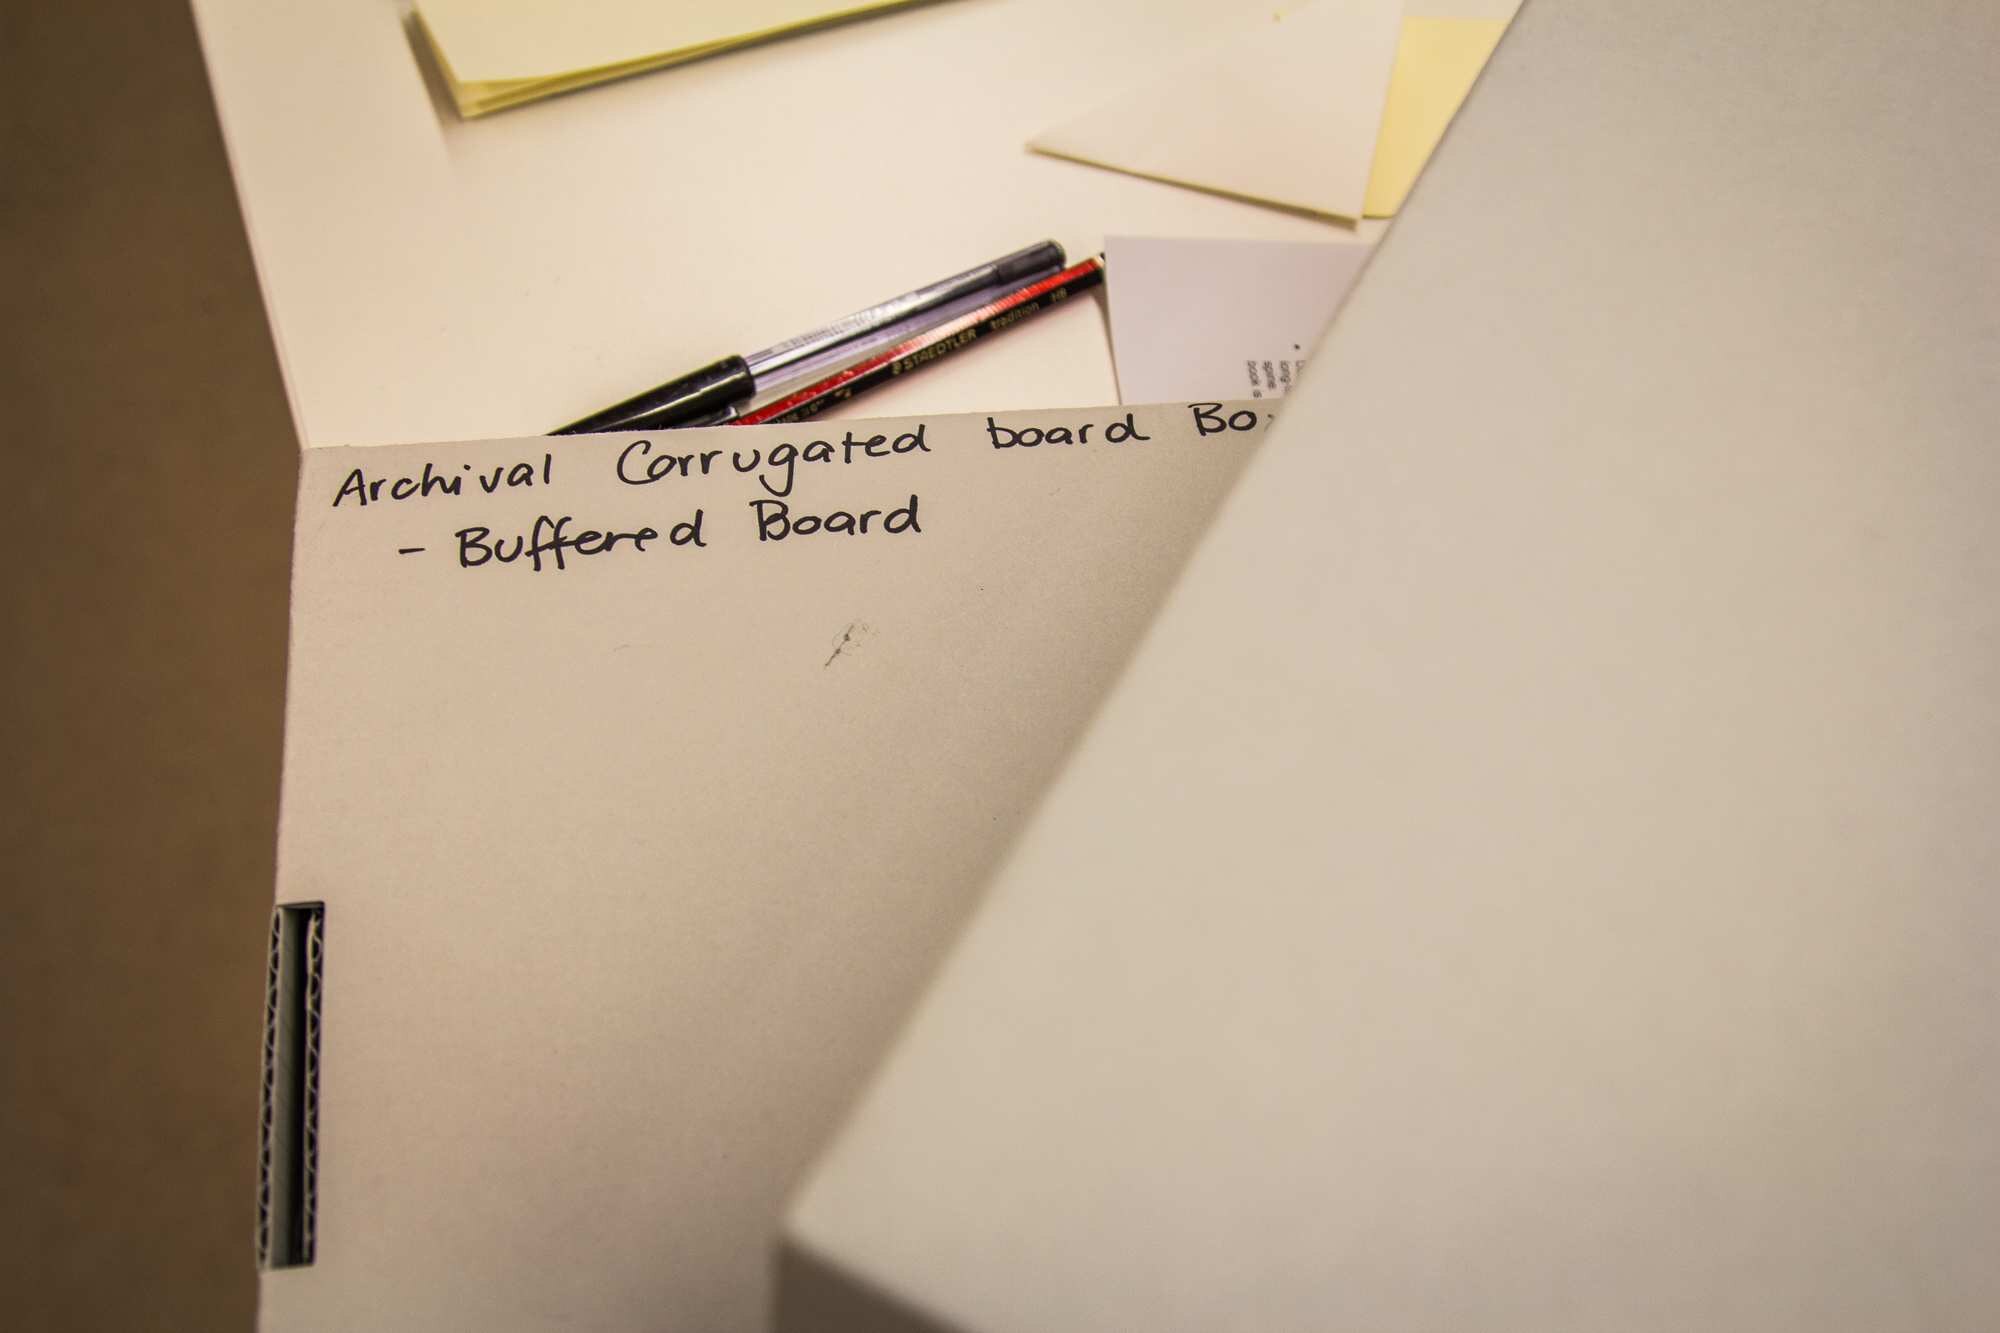 Archival Corrugated board Box
- Buffered Board
STAEDTLER tradition HB
long-
spine
book is